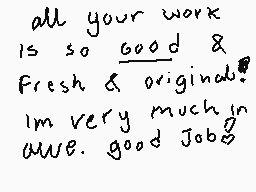 all your work
is so good &
fresh & original!
im very much in
awe. good Job!